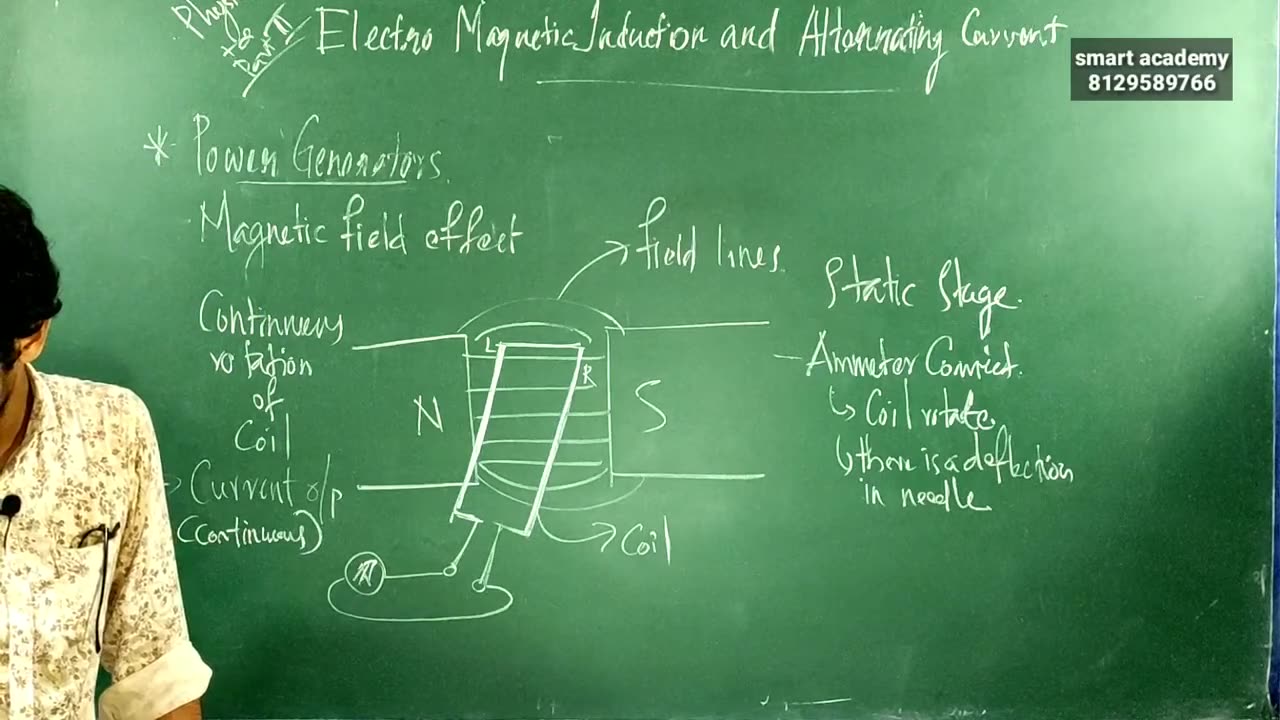 to
Part II
Electro Magnetic Induction and Alternating Current
smart academy
8129589766
* Power Generators.
Magnetic field effect
field lines.
Static Stage.
Continuous
rotation
of
Coil
→ Current o/p
(continuous)
L
R
N
S
Coil
- Ammeter Connect.
↳ Coil rotate
↳ there is a deflection
in needle